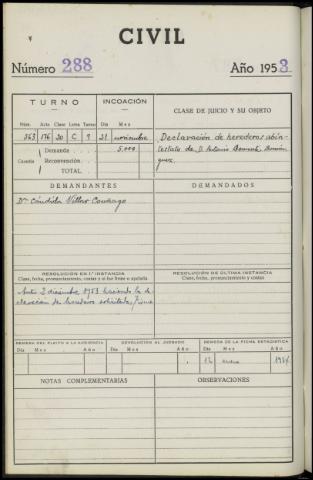 CIVIL
Número 288 Año 1953
TURNO INCOACIÓN CLASE DE JUICIO Y SU OBJETO
Núm. Acta Clase Letra Turno Día Mes
263 176 20 C 9 21 noviembre Declaración de herederos abin-
Cuantía Demanda 5.000 testato de D. Antonio
Reconvención
TOTAL
DEMANDANTES DEMANDADOS
Dª Cándida Villar
RESOLUCIÓN EN 1.ª INSTANCIA RESOLUCIÓN DE ÚLTIMA INSTANCIA
Clase, fecha, pronunciamiento, costas y si fue firme o apelada Clase, fecha, pronunciamiento y costas
Auto 2 diciembre 1953 haciendo la de-
claración de herederos solicitada, firme
REMESA DEL PLEITO A LA AUDIENCIA DEVOLUCIÓN AL JUZGADO REMESA DE LA FICHA ESTADÍSTICA
Día Mes Año Día Mes Año Día Mes Año
NOTAS COMPLEMENTARIAS OBSERVACIONES